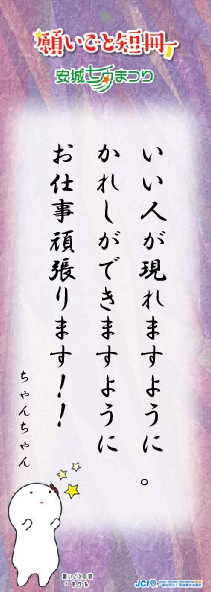 願いごと短冊
安城七夕まつり
いい人が現れますように。
かれしができますように
お仕事頑張ります！！
ちゃんちゃん
JCI